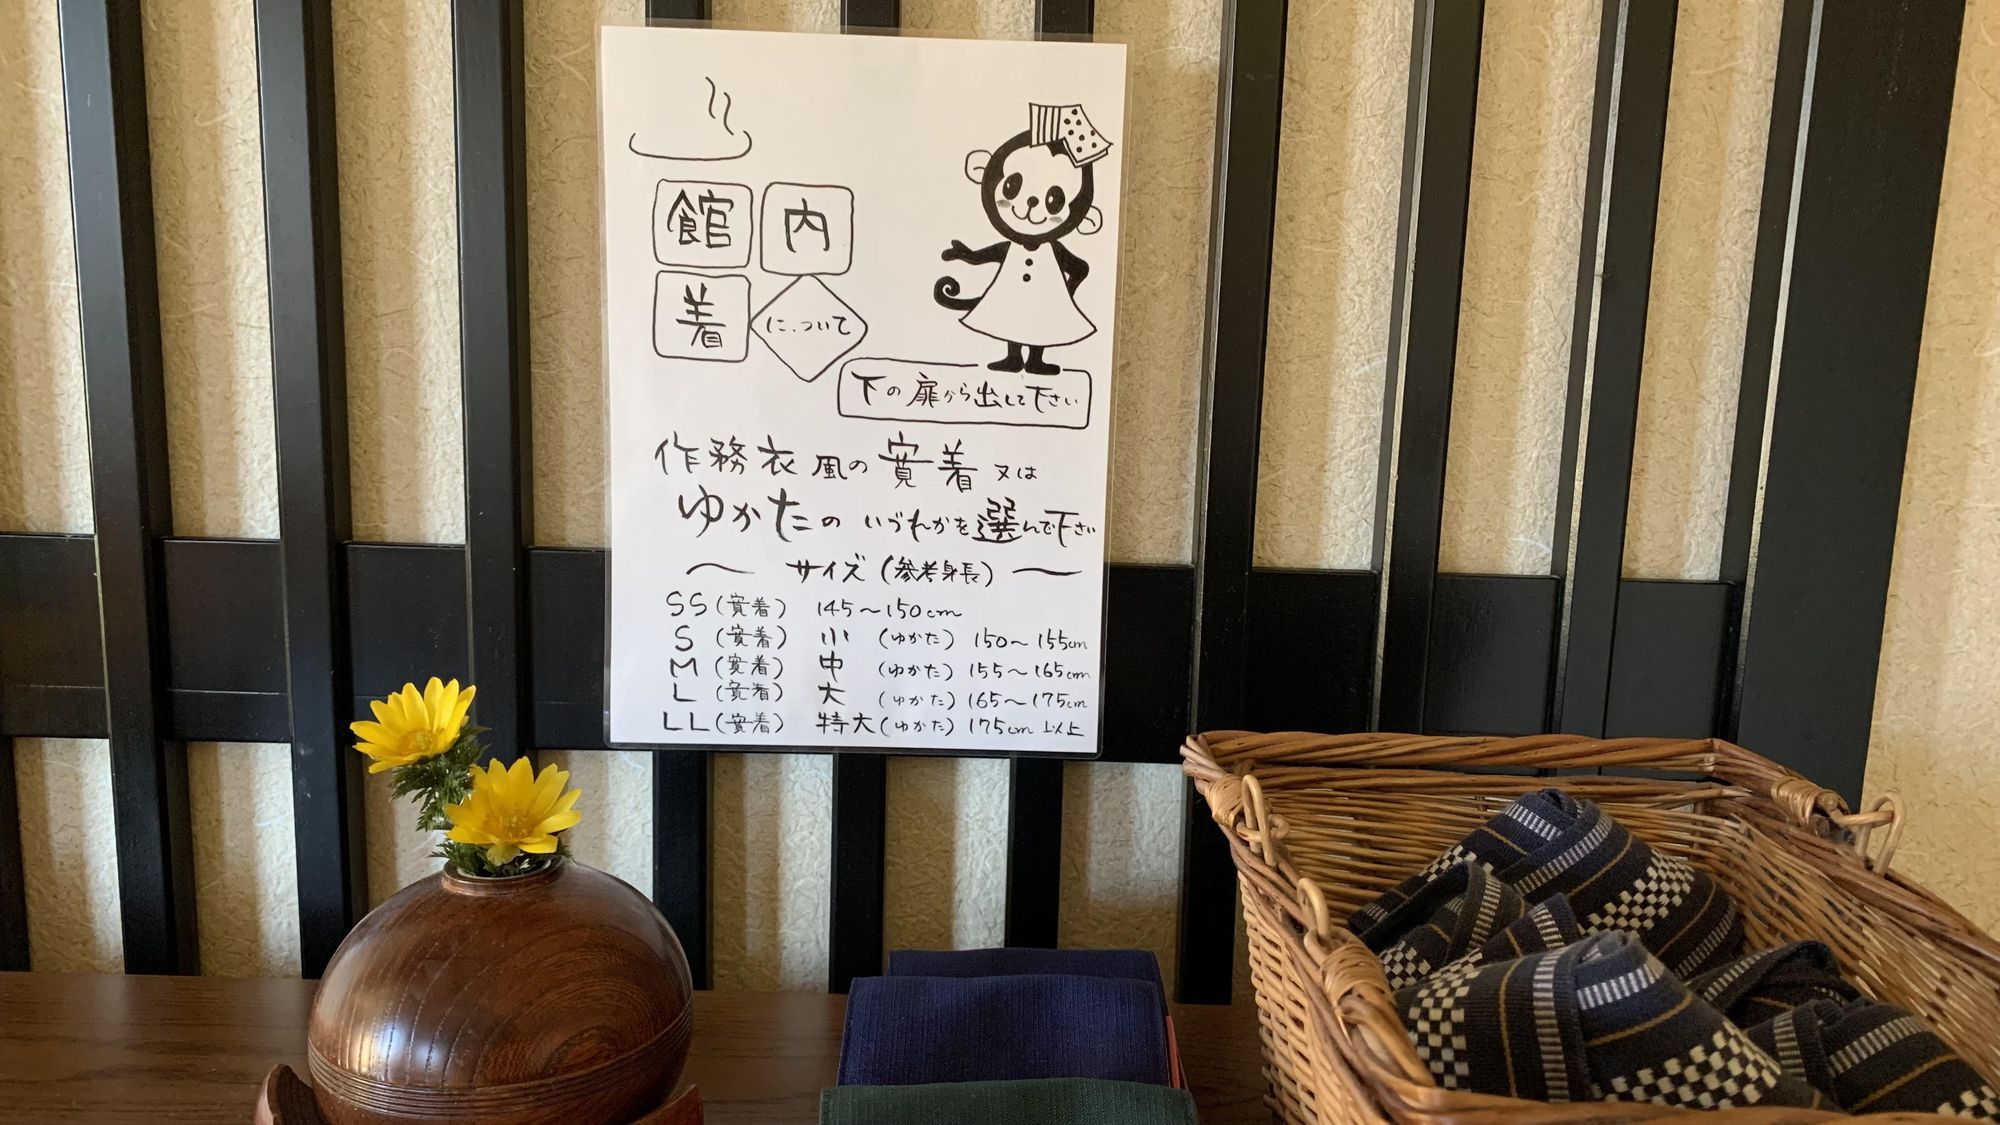 館内
着について
下の扉から出して下さい
作務衣風の寛着又は
ゆかたのいづれかを選んで下さい
〜 サイズ(参考身長) 〜
SS(寛着) 145〜150cm
S (寛着) 小 (ゆかた) 150〜155cm
M (寛着) 中 (ゆかた) 155〜165cm
L (寛着) 大 (ゆかた) 165〜175cm
LL(寛着) 特大(ゆかた) 175cm以上